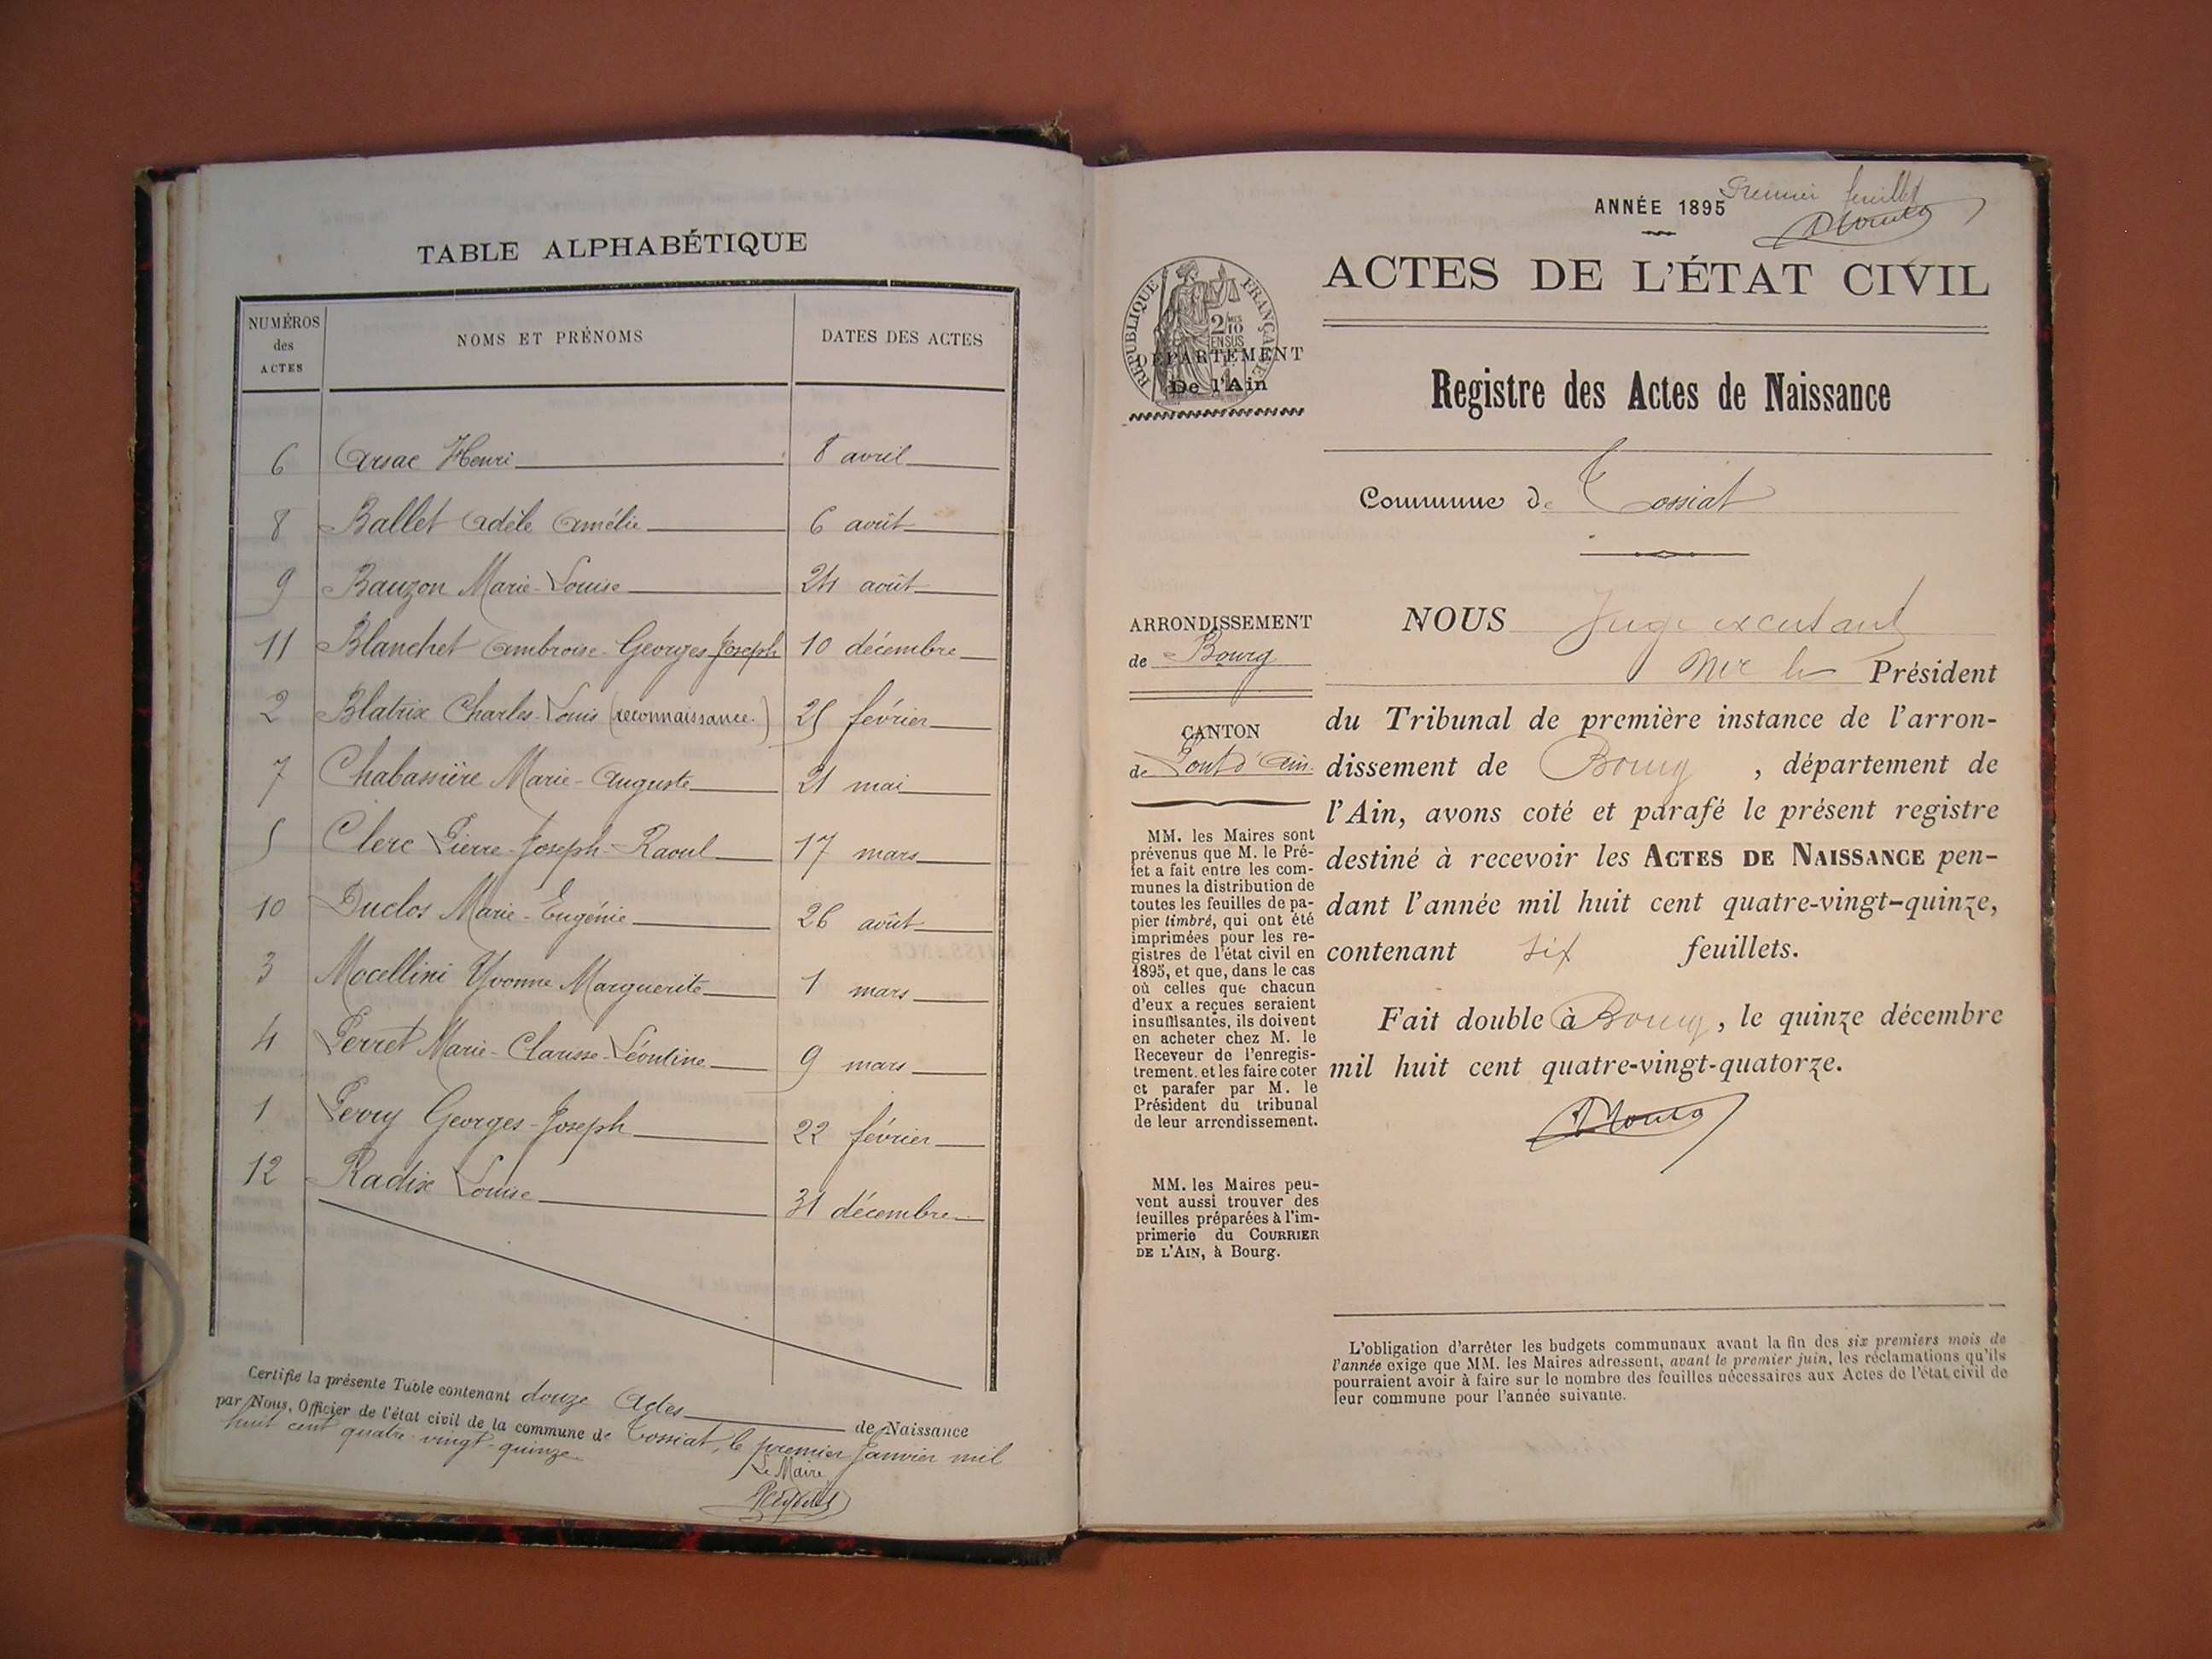 TABLE ALPHABÉTIQUE
NUMÉROS des ACTES
NOMS ET PRÉNOMS
DATES DES ACTES
6 Arsac Henri 8 avril
8 Ballet Adèle Amélie 6 août
9 Bauzon Marie-Louise 24 août
11 Blanchet Ambroise-Georges-Joseph 10 décembre
2 Blatrix Charles-Louis (reconnaissance.) 25 février
7 Chabassière Marie-Auguste 21 mai
5 Clerc Pierre-Joseph-Raoul 17 mars
10 Duclos Marie-Eugénie 26 août
3 Mocellini Yvonne Marguerite 1 mars
4 Perret Marie-Clarisse-Léontine 9 mars
1 Perry Georges-Joseph 22 février
12 Radix Louise 31 décembre
Certifié la présente Table contenant douze Actes de Naissance
par Nous, Officier de l'état civil de la commune de Tossiat, le premier Janvier mil
huit cent quatre-vingt-quinze
Le Maire
Premier feuillet
ANNÉE 1895
ACTES DE L'ÉTAT CIVIL
RÉPUBLIQUE FRANÇAISE
2/10 EN SUS
DÉPARTEMENT
De l'Ain
Registre des Actes de Naissance
Commune de Tossiat
ARRONDISSEMENT
de Bourg
CANTON
de Pont d'Ain
MM. les Maires sont
prévenus que M. le Pré-
fet a fait entre les com-
munes la distribution de
toutes les feuilles de pa-
pier timbré, qui ont été
imprimées pour les re-
gistres de l'état civil en
1895, et que, dans le cas
où celles que chacun
d'eux a reçues seraient
insuffisantes, ils doivent
en acheter chez M. le
Receveur de l'enregis-
trement, et les faire coter
et parafer par M. le
Président du tribunal
de leur arrondissement.
MM. les Maires peu-
vent aussi trouver des
feuilles préparées à l'im-
primerie du COURRIER
DE L'AIN, à Bourg.
NOUS Juge
Président
du Tribunal de première instance de l'arron-
dissement de Bourg, département de
l'Ain, avons coté et parafé le présent registre
destiné à recevoir les ACTES DE NAISSANCE pen-
dant l'année mil huit cent quatre-vingt-quinze,
contenant six feuillets.
Fait double à Bourg, le quinze décembre
mil huit cent quatre-vingt-quatorze.
L'obligation d'arrêter les budgets communaux avant la fin des six premiers mois de
l'année exige que MM. les Maires adressent, avant le premier juin, les réclamations qu'ils
pourraient avoir à faire sur le nombre des feuilles nécessaires aux Actes de l'état civil de
leur commune pour l'année suivante.